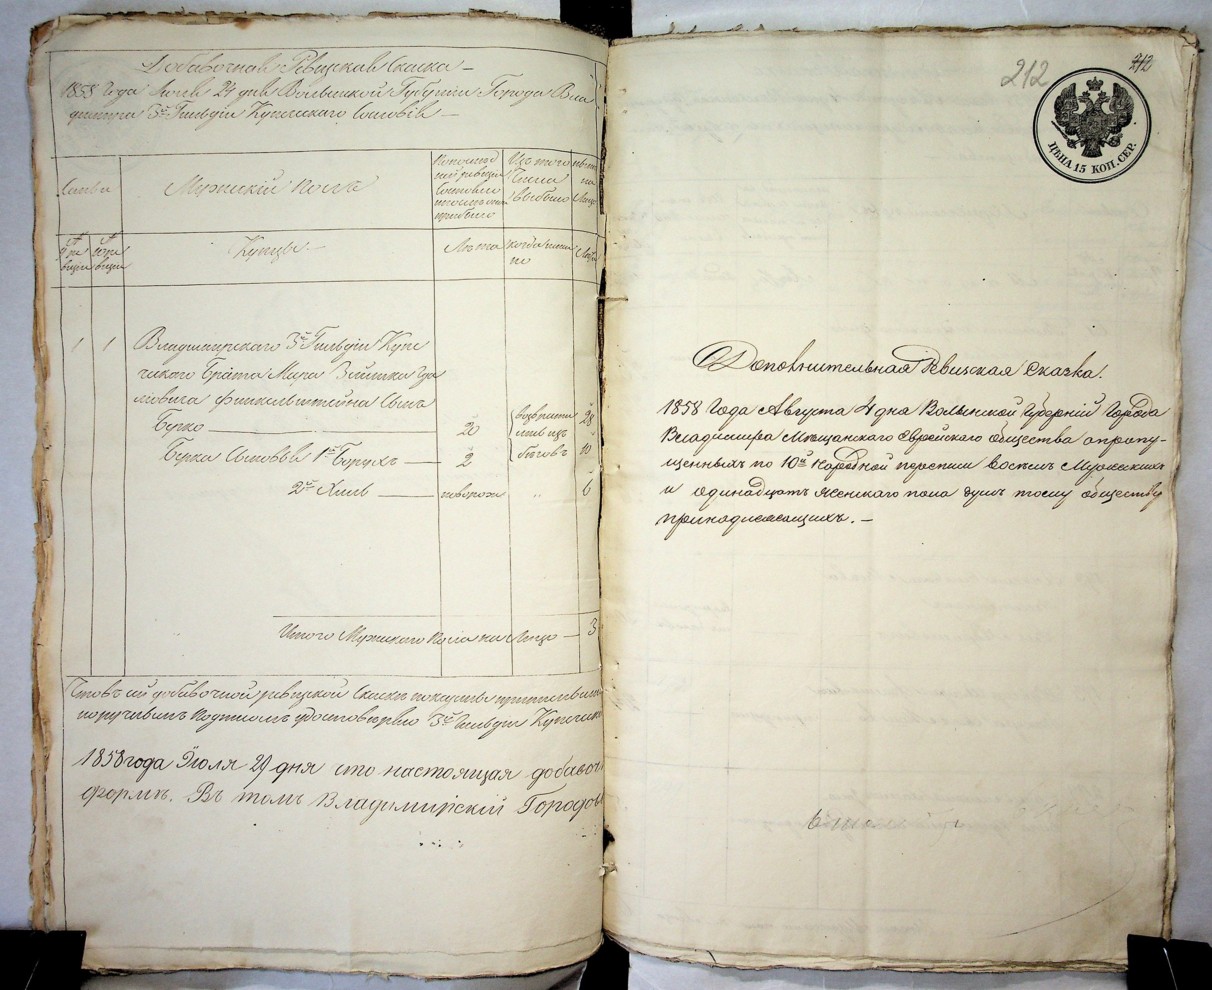 Добавочная Ревизская Сказка
1858 Года Июля 24 дня Волынской Губерніи Города Вла
диміра 3й Гильдіи Купеческаго Сословія
Семьи
Мужескій полъ
По послѣд
ней ревизіи
Состояло
и послѣ оной
прибыло
Изъ того
Числа
выбыло
на
Лицо
№ 9 ре
визіи
№ 10 ре
визіи
Купцы
Лѣта
когда имян
но
Лѣта
1 1 Владимирскаго 3й Гильдіи Купе
ческаго Брата
Финкельштейна Сынъ
Берко 20 28
возврати
лся изъ
бѣговъ
Берка Сыновья 1й Борухъ 2 10
2й Хаимъ новорож „ 6
Итого Мужескаго пола на Лицо 3
Что въ сей добавочной ревизской Сказкѣ
подписомъ удостовѣряю 3й Гильдіи
1858 года Іюля 29 дня сія настоящая добавоч
формѣ. Въ томъ Владимирскій Городов
212
212
ЦѢНА 15 КОП. СЕР.
Дополнительная Ревизская Сказка.
1858 Года Августа 4 дна Волынской Губерній Города
Владимира Мѣщанскаго Еврейскаго общества опропу-
щенныхъ по 10й народной переписи восемь Мужескихъ
и одинадцать женскаго пола душъ тому обществу
принадлежащихъ. –